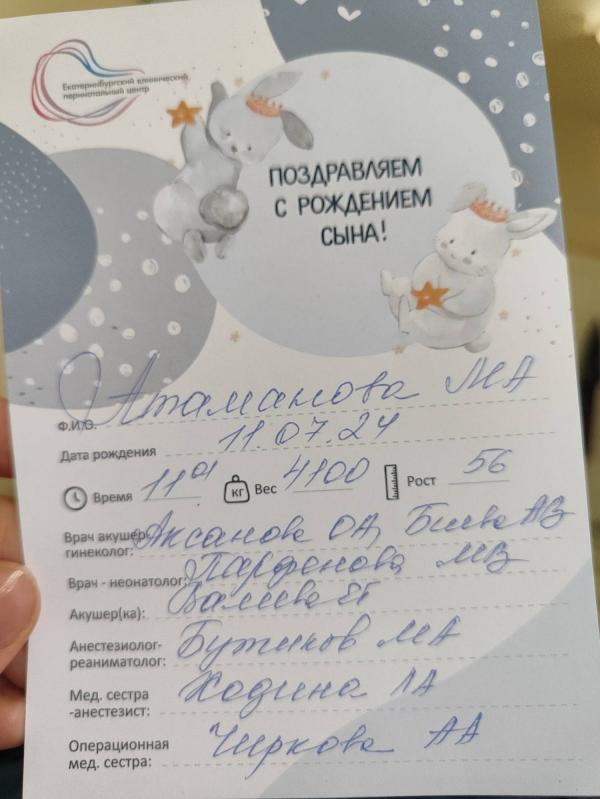 Екатеринбургский клинический
перинатальный центр
ПОЗДРАВЛЯЕМ
С РОЖДЕНИЕМ
СЫНА!
Ф.И.О. Атаманова МА
Дата рождения 11.07.24
Время 11 01 кг Вес 4100 Рост 56
Врач акушер- Аксанова ОА,
гинеколог:
Врач - неонатолог: Парфенова МВ
Акушер(ка): Валиева
Анестезиолог-
реаниматолог: Бутиков МА
Мед. сестра
-анестезист: Ходина ЛА
Операционная
мед. сестра: Чиркова АА